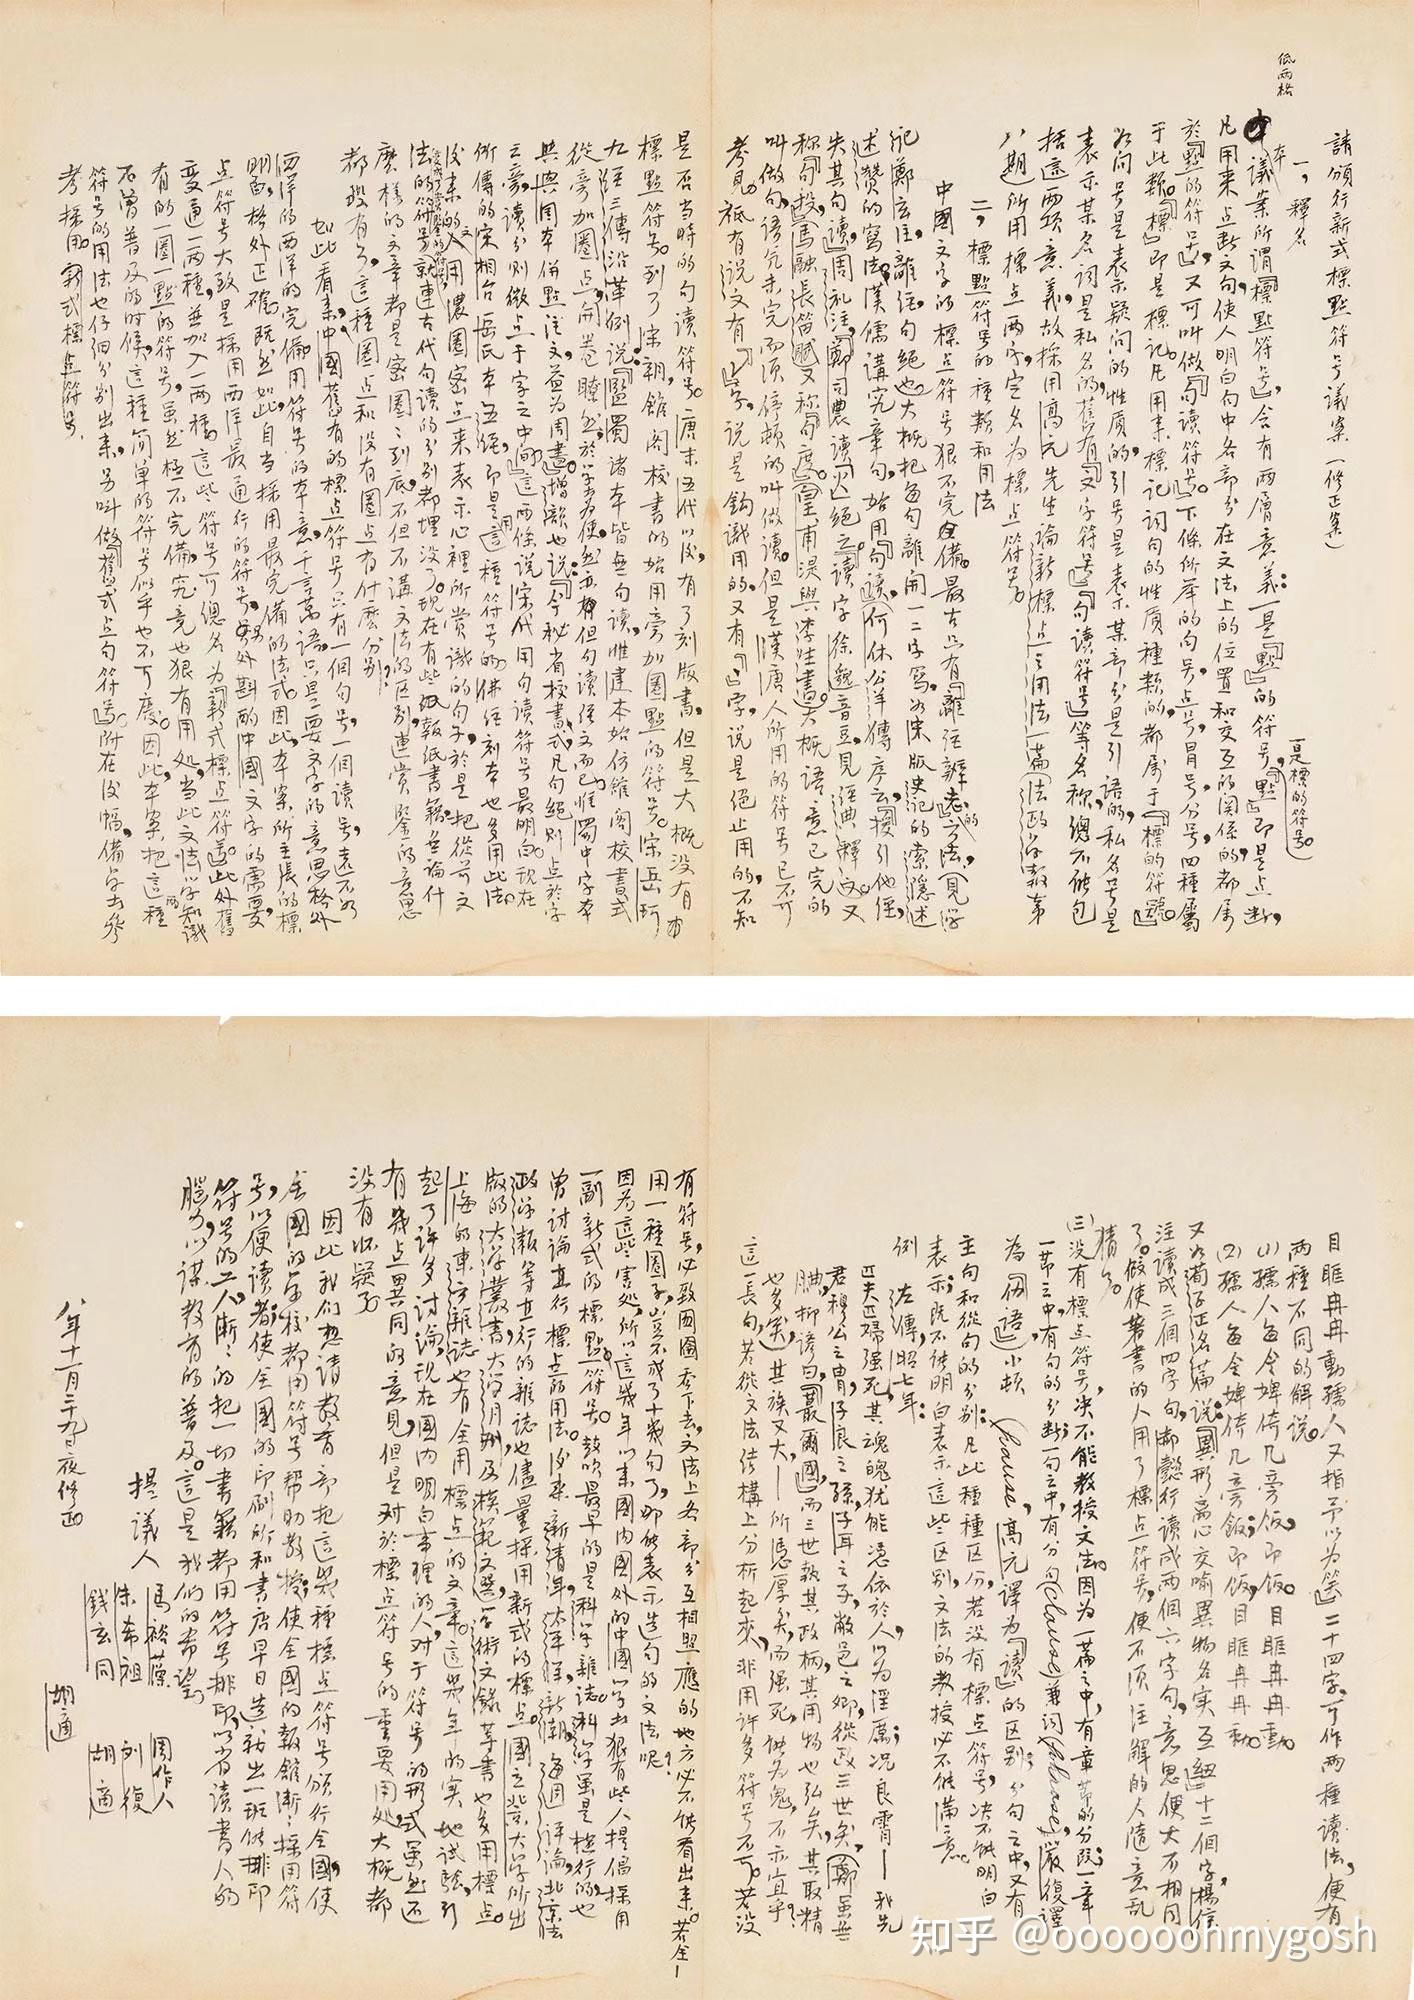 低兩格
請頒行新式標點符号議案（修正案）
一，釋名
本議案所謂「標點符号」，含有兩層意義：一是「點」的符号，一是「標」的符号。「點」即是点断，
凡用来点断文句，使人明白句中各部分在文法上的位置和交互的関係的，都属
於「點的符号」，又可叫做「句讀符号」。下條所举的句号，点号，冒号，分号，四種属
于此類。「標」即是標記。凡用来標記詞句的性质種類的，都属于「標的符號」。
如问号是表示疑问的性质的，引号是表示某部分是引语的，私名号是
表示某名詞是私名的。舊有「文字符号」「句讀符号」等名称，總不能包
括這兩项意義，故採用高元先生論新標点之用法一篇（法政学報第
八期）所用標点两字，定名为標点符号。
二，標點符号的種類和用法
中國文字的標点符号狠不完全備。最古只有「離经辨志」的方法，（見学
記鄭玄注，離经，句絕也。）大概把每句離開一二字寫，如宋版史記的索隱述
述贊的寫法。漢儒講究章句，始用「句讀」，（何休公洋傳序云，援引他经，
失其句讀，周礼注，鄭司農讀火絕之，讀字徐邈音豆，見經典釋文。）又
称「句投」，（馬融長笛賦）又称「句度」。（皇甫湜與李生書）大概語意已完的
叫做句，语气未完而须停頓的叫做读。但是漢唐人所用的符号已不可
考見。祗有说文有「」字，说是鈎識用的，又有「、」字，说是絕止用的，不知
是否当時的句读符号。唐末五代以後，有了刻版書，但是大概没有
標點符号。到了宋朝，館阁校書的始用旁加圈點的符号。宋岳珂
九经三傳沿革例说：「監蜀諸本皆無句讀，惟建本始仿館阁校書式
從旁加圈点，開卷瞭然，於学者为便，然亦但句讀经文而已。惟蜀中字本
與興国本併點注文，益为周盡。」增韻也说：「今秘省校書式，凡句絕則点於字
之旁，读分則微点于字之中间。」這两條说宋代用句读符号最明白。现在
所傳的宋相台岳氏本五经，即是用這種符号的。佛经刻本也多用此法。
後来的文人用濃圈密点来表示心裡所賞識的句子，於是把從前文
法的符号變成了賞鑒的符号，就連古代句读的分別都埋没了。现在有些報纸書籍，無论什
麼樣的文章都是密圈圈到底，不但不講文法的区别，連赏鉴的意思
都没有了。這種圈点和没有圈点有什麼分别？
如此看来，中國舊有的標点符号只有一個句号，一個读号，遠不如
西洋的完備。用符号的本意，千言萬语，只是要文字的意思格外
明白，格外正確。既然如此，自当採用最完備的法式。因此，本案所主張的標
点符号大致是採用西洋最通行的符号，另外斟酌中國文字的需要，
变通一两種，並加入一两種。這些符号可總名为「新式標点符号」。此外舊
有的一圈一點的符号，虽然極不完備，究竟也狠有用处，当此文法知識
不曾普及的时候，這種简单的符号似乎也不可廢。因此，本案把這两種
符号的用法也仔细分别出来，另叫做「舊式点句符号」。附在後幅，備学者參
考採用。新式標点符号，
目眶冉冉動孺人又指予以为笑」二十四字，可作两種读法，便有
两種不同的解说。
(1) 孺人每令婢倚几旁饭，即饭。目眶冉冉動。
(2) 孺人每令婢倚几旁饭；即饭，目眶冉冉動。
又如荀子正名篇说「異形離心交喻異物名实互紐」十二個字，楊倞
注读成三個四字句，郝懿行读成两個六字句，意思便大不相同
了。假使著書的人用了標点符号，便不须注解的人隨意乱
猜了。
（三）没有標点符号，决不能教授文法。因为一篇之中，有章节的分段；一章
一节之中，有句的分断；一句之中，有分句(clause)兼词(phrase，嚴復譯
为「仂语」）小顿(pause，高元译为「读」)的区别；分句之中，又有
主句和從句的分别：凡此種種区分，若没有標点符号，决不能明白
表示；既不能明白表示這些区别，文法的教授必不能满意。
例 左傳昭七年：
匹夫匹婦强死，其魂魄犹能憑依於人，以为淫厲；况良霄——我先
君穆公之冑，子良之孫，子耳之子，敝邑之卿，從政三世矣，（鄭虽無
腆，抑諺曰，「蕞爾國」，而三世執其政柄，其用物也弘矣，其取精
也多矣，）其族又大——所憑厚矣，而强死，能为鬼，不亦宜乎？
這一長句，若從文法结構上分析起来，非用许多符号不可。若没
有符号，必致囫圇吞下去，文法上各部分互相照應的地方必不能看出来。若全
用一種圈子，豈不成了十幾句了，那能表示造句的文法呢？
因为這些害处，所以這幾年以来國内國外的中國学者狠有些人提倡採用
一副新式的標點符号。鼓吹最早的是科学雜誌。科学虽是横行的，也
曾讨論直行標点的用法。後来新青年，太平洋，新潮，每週评论，北京法
政学報等直行的雜誌也儘量採用新式的標点。國立北京大学所出
版的大学叢書，大学月刊，及模範文選，学術文錄等書也多用標点。
上海的東方雜誌也有全用標点的文章。這幾年的实地试驗，引
起了许多讨论，现在国内明白事理的人对于符号的形式虽然还
有幾点異同的意見，但是对於標点符号的重要用处，大概都
没有怀疑了。
因此我们想请教育部把這幾種標点符号頒行全國，使
全國的学校都用符号帮助教授；使全國的報館漸漸採用符
号，以便读者；使全國的印刷所和書店早日造就出一班能排印
符号的工人，漸漸的把一切書籍都用符号排印，以省读書人的
腦力，以謀教育的普及。這是我们的希望。
提議人 馬裕藻 周作人
朱希祖 刘復
錢玄同 胡適
八年十一月二十九日夜修正 胡適
知乎 @oooooohmygosh